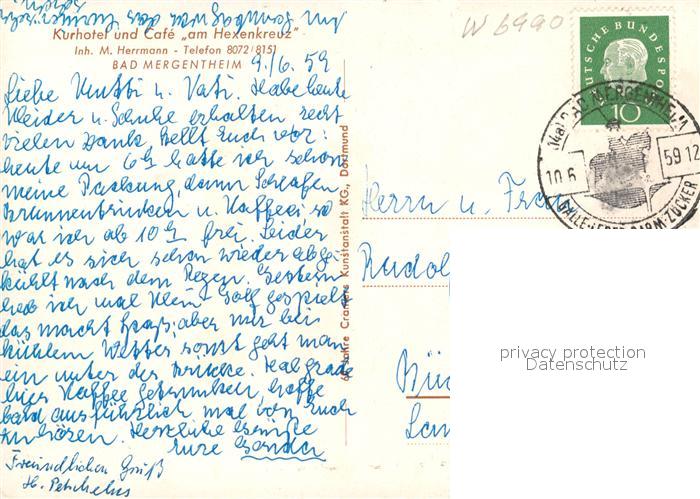 Kurhotel und Café „am Hexenkreuz"
Inh. M. Herrmann - Telefon 8072/8151
BAD MERGENTHEIM
9./6. 59
Liebe Mutti u. Vati. Habe heute
Kleider u. Schuhe erhalten recht
vielen Dank, stellt Euch vor:
heute um 6 h hatte ich schon
meine Packung, dann Schlafen,
Brunnentrinken u. Kaffee, so
war ich ab 10 h frei. Leider
hat es sich schon wieder abge
kühlt nach dem Regen. Gestern
hab ich mal klein Golf gespielt
das macht Spaß, aber nur bei
kühlem Wetter sonst geht man
ein unter der Hitze. Hab grade
Kaffee getrunken, hoffe
bald ausführlich mal von Euch
zu hören. Herzliche Grüße
Eure
Freundlichen Gruß
H.
65 Jahre Cramers Kunstanstalt KG., Dortmund
W 6990
DEUTSCHE BUNDESPOST
10
(14a) BAD MERGENTHEIM
10.6
59.12
GALLE-LEBER-DARM-ZUCKER
Herrn u. Frau
Rudol
privacy protection
Datenschutz